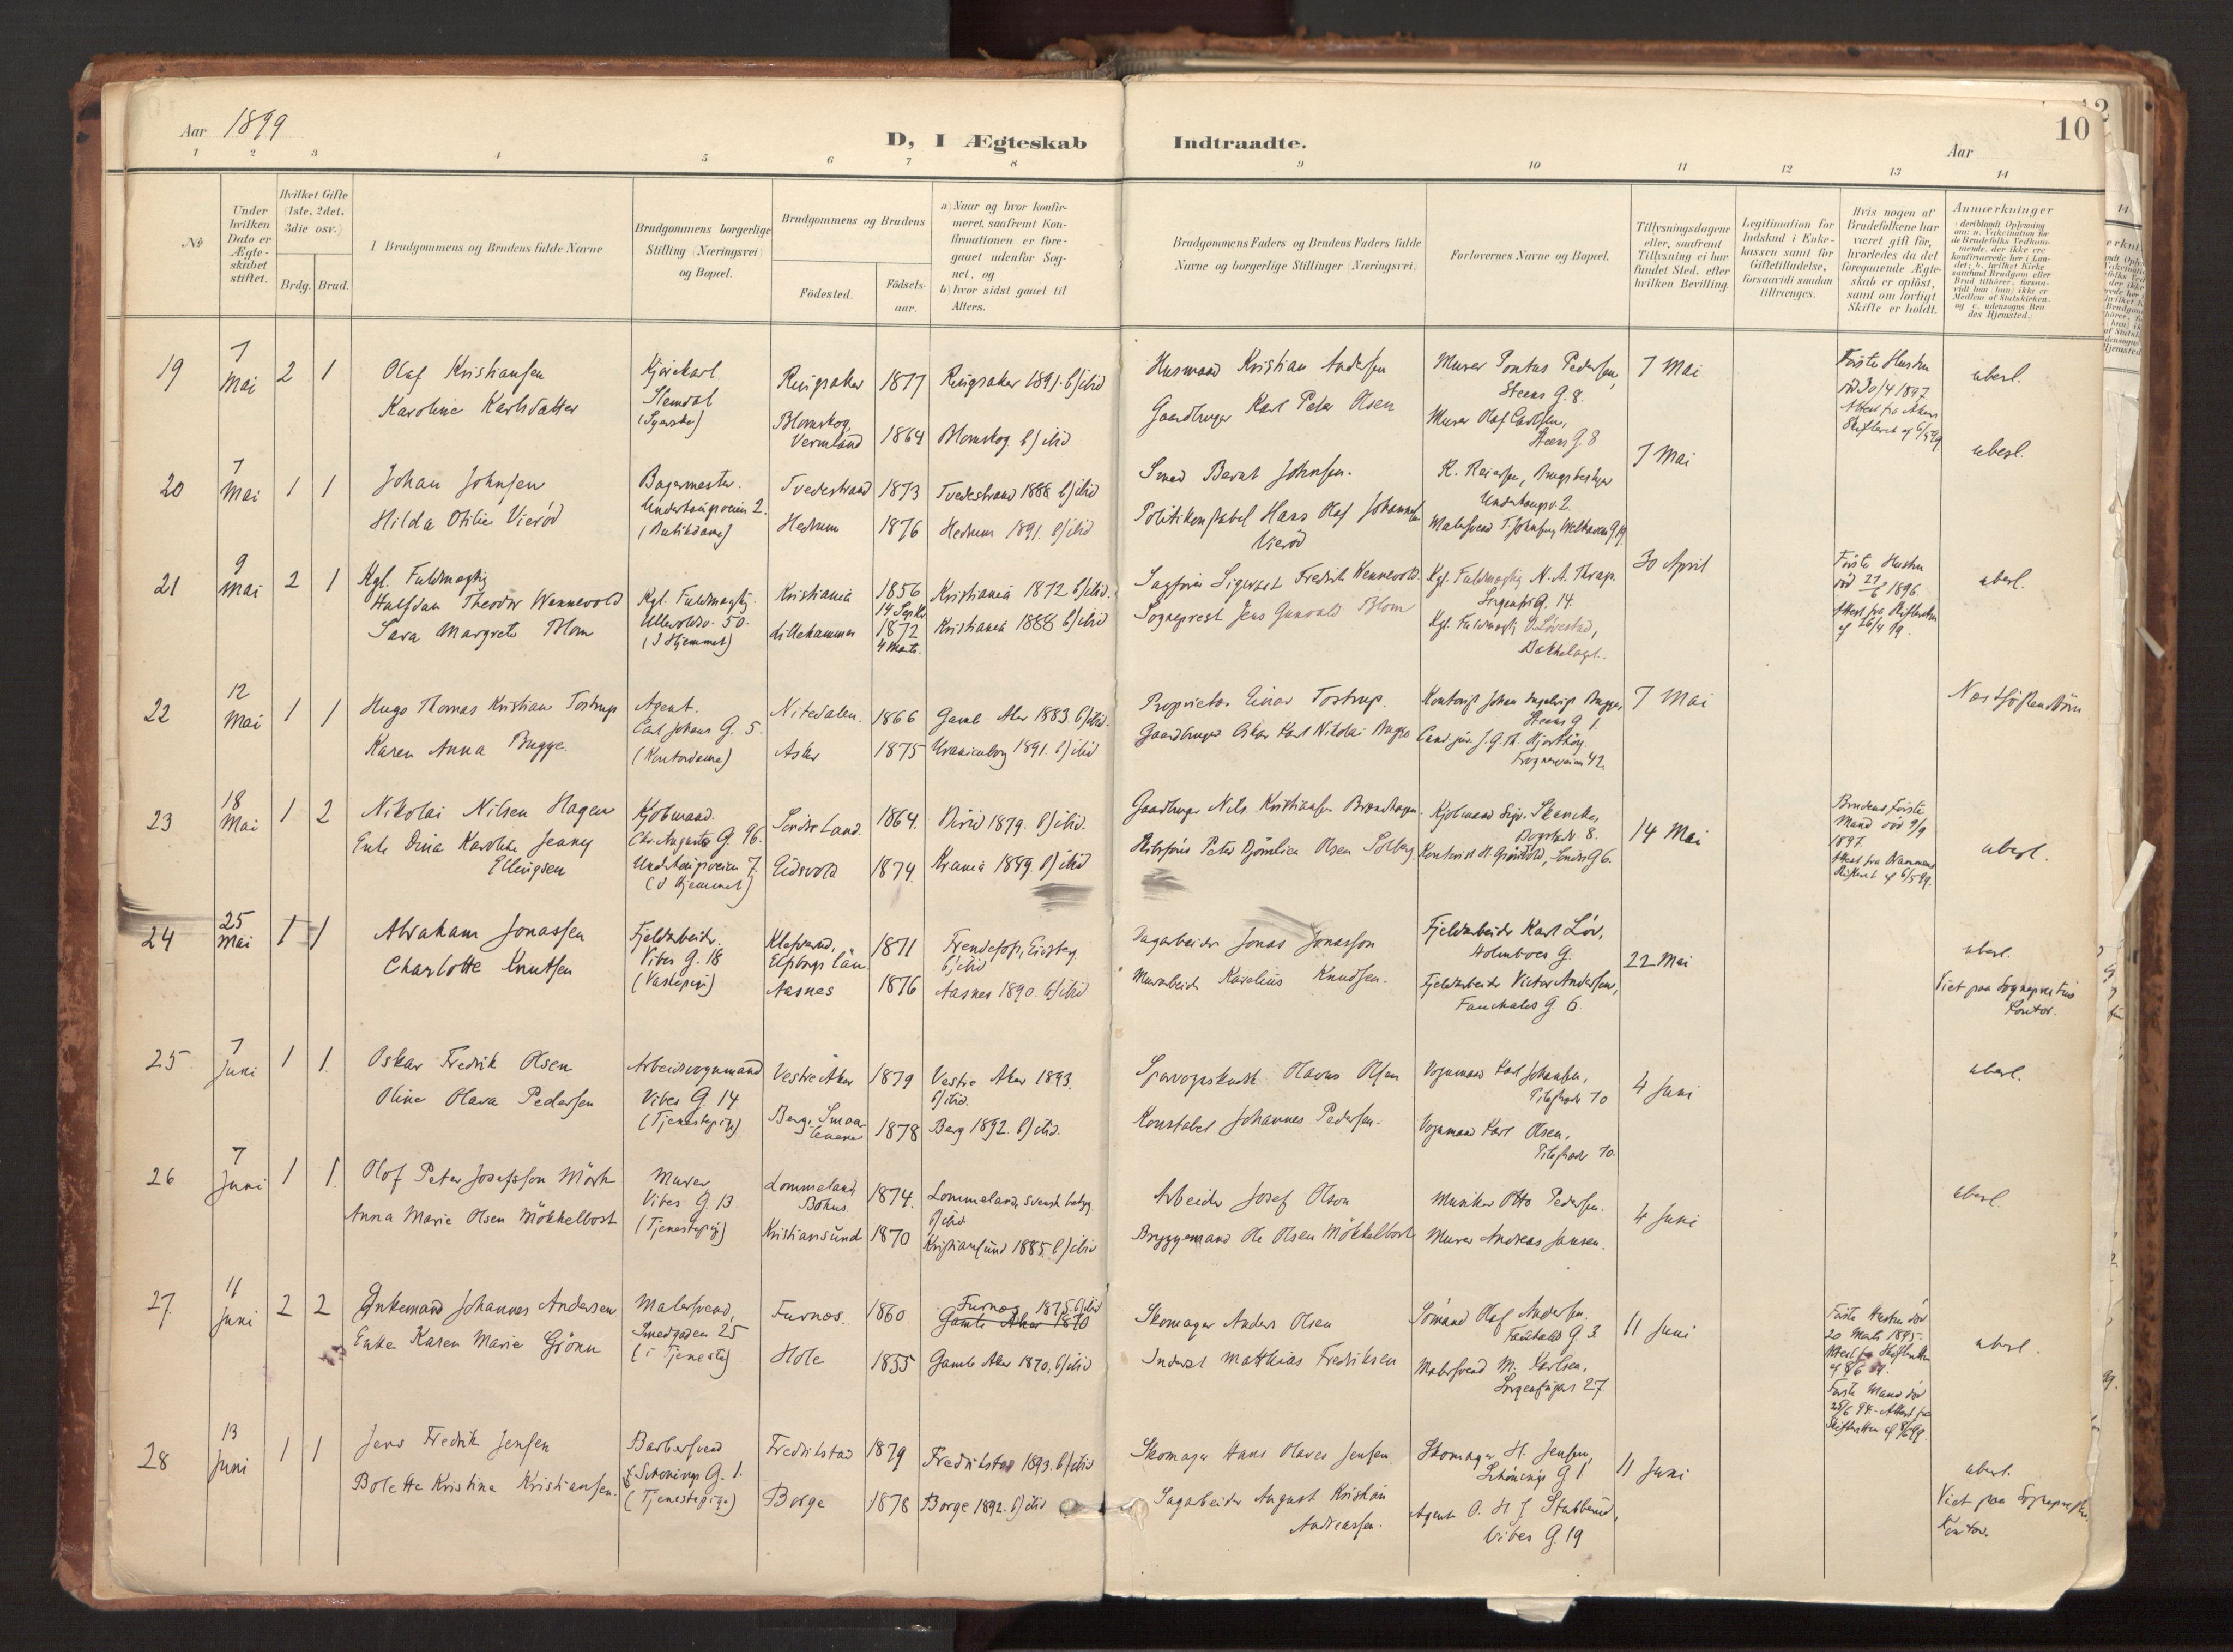 Aar 1899
D, I Ægteskab Indtraadte.
Aar
10
1 2 3 4 5 6 7 8 9 10 11 12 13 14
No
Under hvilken Dato er Ægteskabet stiftet.
Hvilket Gifte (1ste, 2det, 3die osv.)
Brdg. Brud.
Brudgommens og Brudens fulde Navne
Brudgommens borgerlige Stilling (Næringsvei) og Bopæl.
Brudgommens og Brudens
Födested.
Födselsaar.
a) Naar og hvor konfirmeret, saafremt Konfirmationen er foregaaet udenfor Sognet, og
b) hvor sidst gaaet til Alters.
Brudgommens Faders og Brudens Faders fulde Navne og borgerlige Stillinger (Næringsvei)
Forlovernes Navne og Bopæl.
Tillysningsdagene eller, saafremt Tillysning ei har fundet Sted, efter hvilken Bevilling.
Legitimation for Indskud i Enkekassen samt for Giftetilladelse, forsaavidt saadan tiltrænges.
Hvis nogen af Brudefolkene har været gift för, hvorledes da det foregaaende Ægteskab er oplöst, samt om lovligt Skifte er holdt.
Anmærkninger
19
7 Mai
2 1
Olaf Kristiansen
Karoline Karlsdatter
Kjörekarl
Ringsaker 1877 Ringsaker 1891. b) ibid
Blomskog, Vermland 1864 Blomskog b) ibid
Husmand Kristian Andersen
Gaardbruger Karl Peter Olsen
Murer Pontus Pedersen,
Steens G. 8.
Murer Olaf Carlsen,
Steens G. 8
7 Mai
Förste Hustru
död 30/4 1897
Attest fra Akers
uberl.
20
7 Mai
1 1
Johan Johnsen
Hilda Otilie Vieröd
Bagermester.
Underhaugsveien 2.
(Butikdame)
Tvedestrand 1873 Tvedestrand 1888 b) ibid
Hedrum 1876 Hedrum 1891. b) ibid
Smed Bernt Johnsen.
Politikonstabel Hans Olaf Johannesen
Vieröd
Underhaugsv. 2.
Malersvend T. Johnsen, Welhavens G. 19.
7 Mai
uberl.
21
9 Mai
2 1
Kgl. Fuldmægtig
Halfdan Theodor Wennevold
Sara Margrete Blom
Kgl. Fuldmægtig.
Ullevoldsv. 50.
(I Hjemmet)
Kristiania 1856 14 Septbr Kristiania 1872 b) ibid.
Lillehammer 1872 4 Marts. Kristiania 1888 b) ibid
Sagförer Sigwart Fredrik Wennevold.
Sogneprest Jens Gunvald Blom
Kgl. Fuldmægtig N. A. Thrap.
Sorgenfri G. 14.
Kgl. Fuldmægtig O. Lövestad,
Bækkelaget.
30 April
Förste Hustru
död 27/6 1896.
Attest fra Skifteretten
af 26/4 99.
uberl.
22
12 Mai
1 1
Hugo Thomas Kristian Tostrup
Karen Anna Bugge.
Agent.
Carl Johans G. 5.
(Kontordame)
Nitedalen. 1866 Gamle Aker 1883. b) ibid.
Asker 1875 Uranienborg 1891. b) ibid
Proprietær Einar Tostrup.
Gaardbruger Oskar Karl Nikolai Bugge
Kontorist Johan Ingebrigt Bugge,
Steens G 1.
Cand. jur. J. G. Th. Hjorthöy.
Frognerveien 42.
7 Mai
Næstsöskendbörn
23
18 Mai
1 2
Nikolai Nilsen Hagen
Enke Dina Karoline Jenny
Ellingsen
Kjöbmand.
Chr. Augusts G. 96.
Underhaugsveien 7.
(I Hjemmet)
Söndre Land. 1864. Biri 1879. b) ibid.
Eidsvold 1874. Krania 1889. b) ibid
Gaardbruger Nils Kristiansen Brændhagen.
Skibsförer Peter Djömlien Olsen Solberg.
Kjöbmand Sigv. Skancke,
Bogstadv. 8.
Kontorist H. Grönvold, Söndre G 6.
14 Mai
Brudens förste
Mand död 9/9
1897.
Attest fra Drammens
Skifteret af 6/5 99.
uberl.
24
25 Mai
1 1
Abraham Jonassen
Charlotte Knutsen
Fjeldarbeider.
Vibes G. 18
(Vaskepige)
Elfsborgs län 1871
b) ibid
Aasnes 1876 Aasnes 1890. b) ibid
Dagarbeider Jonas Jonasson
Murarbeider Karelius Knudsen.
Fjeldarbeider Karl Löv,
Holmboes G.
Fjeldarbeider Victor Andersen,
Fauchalds G. 6
22 Mai
uberl.
Viet paa Sogneprestens
Kontor.
25
7 Juni
1 1.
Oskar Fredrik Olsen
Oline Olava Pedersen
Arbeidsvognmand
Vibes G. 14
(Tjenestepige)
Vestre Aker 1879 Vestre Aker 1893.
b) ibid.
Berg, Smaalenene 1878 Berg 1892. b) ibid.
Sporvognskusk Olavus Olsen
Konstabel Johannes Pedersen.
Vognmand Karl Johansen,
Pilestræde 70
Vognmand Karl Olsen,
Pilestræde 70.
4 Juni
uberl.
26
7 Juni
1 1.
Olof Peter Josefsson Mörk
Anna Marie Olsen Mökkelbost
Murer
Vibes G 13
(Tjenestepige)
Lommeland, Bohus. 1874. Lommeland, svensk betyg.
b) ibid
Kristiansund 1870 Kristiansund 1885. b) ibid
Arbeider Josef Olson
Bryggemand Ole Olsen Mökkelbost
Musiker Otto Pedersen.
Murer Andreas Jansen.
4 Juni
uberl.
27
11 Juni
2 2
Enkemand Johannes Andersen
Enke Karen Marie Grönn
Malersvend,
Smedgaden 25
(i Tjeneste)
Furnes. 1860 Furnes 1875. b) ibid
Gamle Aker 1870
Hole 1855 Gamle Aker 1870. b) ibid
Skomager Anders Olsen
Inderst Matthias Fredriksen
Sömand Olaf Andersen.
Fauchalds G. 3.
Malersvend M. Karlsen,
Sorgenfrigaden 27
11 Juni
Förste Hustru död
20 Marts 1895.
Attest fra Skifteretten
af 8/6 99.
Förste Mand död
25/6 94. - Attest fra
Skifteretten af 8/6 99.
uberl.
28
13 Juni
1 1
Jens Fredrik Jensen
Bolette Kristina Kristiansen.
Barbersvend
Schönings G. 1.
(Tjenestepige)
Fredrikstad 1879 Fredrikstad 1893. b) ibid
Borge 1878 Borge 1892. b) ibid
Skomager Hans Olaves Jensen
Sagarbeider August Kristian
Andreassen.
Skomager H. Jensen,
Schönings G 1
Agent O. H. J. Stubberud,
Vibes G. 19
11 Juni
uberl.
Viet paa Sogneprestens
Kontor.